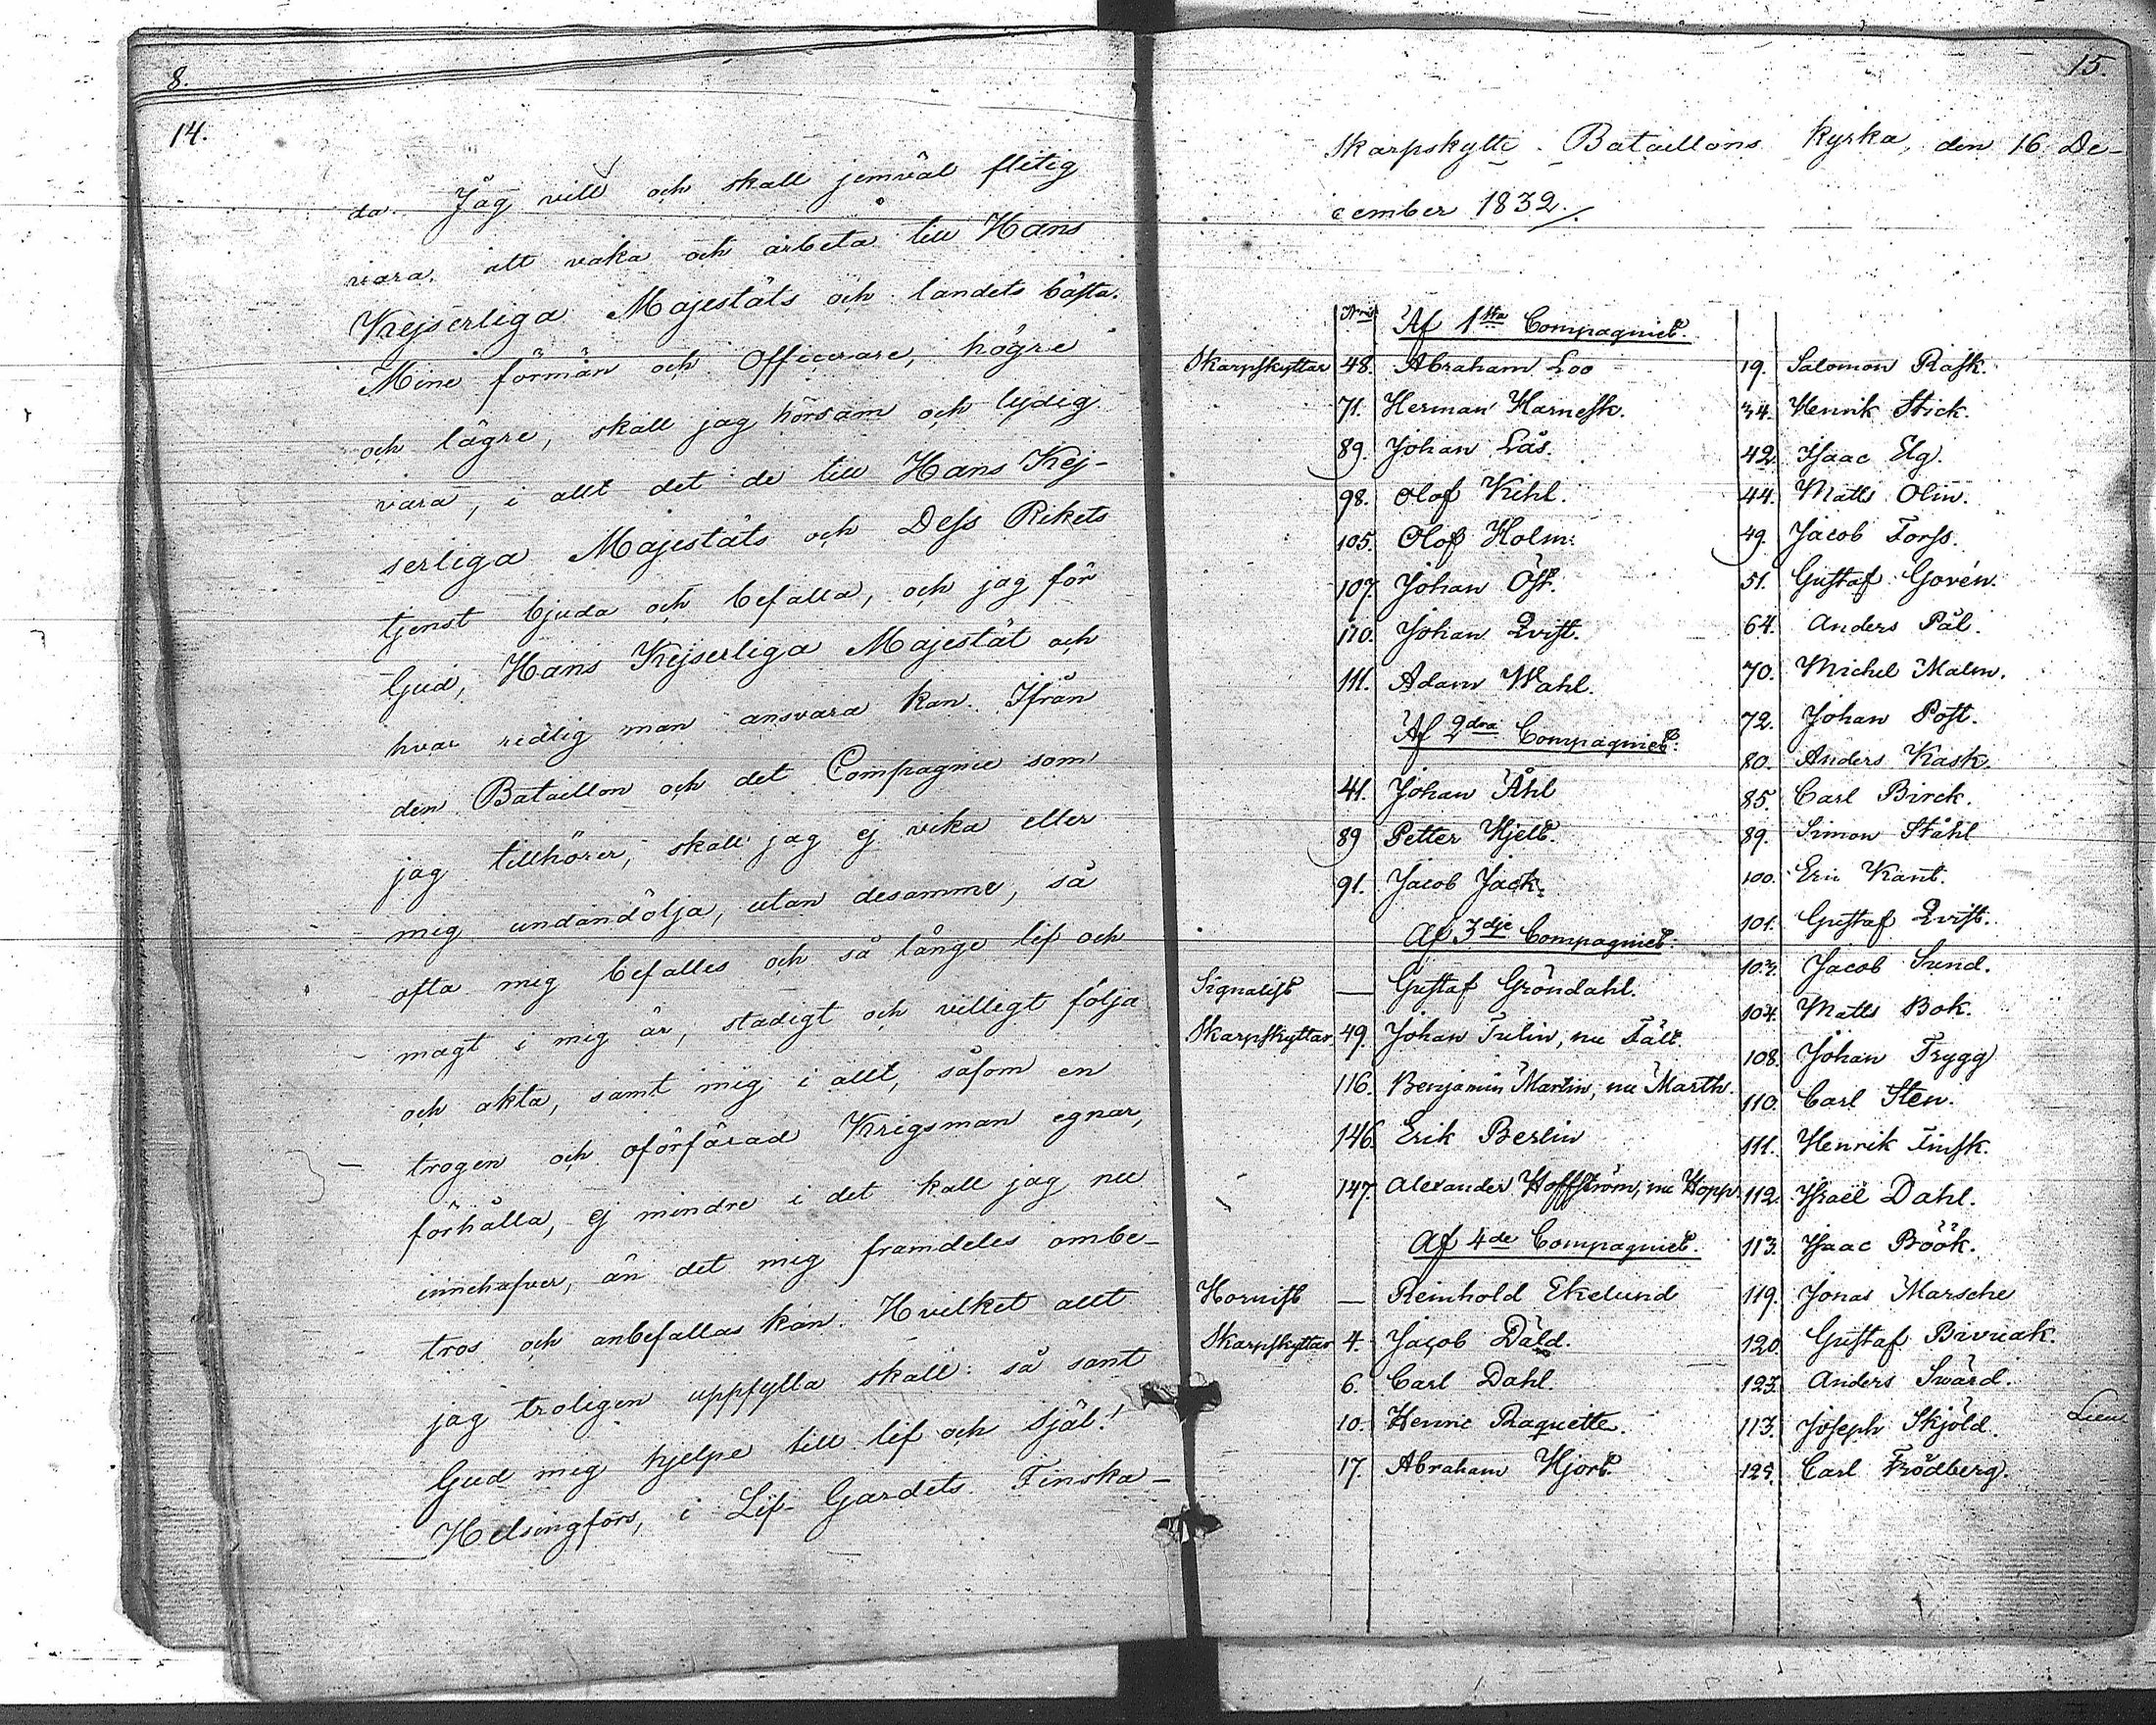 8.
14.
da. Jag vill och skall jemväl flitig
vara, att vaka och arbeta till Hans
Kejserliga Majestäts och landets bästa.
Mine förmän och Officerare, högre
och lägre, skall jag hörsam och lydig
vara, i allt det de till Hans Kej-
serliga Majestäts och Dess Rikets
tjenst bjuda och befalla, och jag för
Gud, Hans Kejserliga Majestät och
hvar redlig man ansvara kan. Ifrån
den Bataillon och det Compagnie som
jag tillhörer, skall jag ej vika eller
mig undandölja, utan desamme, så
ofta mig befalles och så länge lif och
magt i mig är, stadigt och villigt följa
och akta, samt mig i allt, såsom en
trogen och oförfärad Krigsman egnar,
förhålla, ej mindre i det kall jag nu
innehafver, än det mig framdeles ombe-
tros och anbefallas kan. Hvilket allt
jag troligen uppfylla skall: så sant
Gud mig hjelpe till lif och Själ!
Helsingfors, i Lif-Gardets Finska-
15.
Skarpskytte-Bataillons Kyrka, den 16 De-
cember 1832.
Af 1sta Compagniet.
Skarpskyttar 48. Abraham Loo
71. Herman Harnesk.
89. Johan Lås.
98. Olof Kihl.
105. Olof Holm.
107. Johan Öst.
110. Johan Qvist.
111. Adam Wahl.
Af 2dra Compagniet.
41. Johan Åhl
89 Petter Hjelt.
91. Jacob Jack.
Af 3dje Compagniet.
Signalist — Gustaf Gröndahl.
Skarpskyttar 49. Johan Tulin, nu Fält.
116. Benjamin Martin, nu Marth.
146. Erik Berlin
147. Alexander Hoffström, nu Hopp.
Af 4de Compagniet.
Hornist — Reinhold Ekelund
Skarpskyttar 4. Jacob Däld.
6. Carl Dahl.
10. Henric Raquette.
17. Abraham Hjort.
19. Salomon Rask.
34. Henrik Stick.
42. Isaac Elg.
44. Matts Olin.
49. Jacob Forss.
51. Gustaf Govén.
64. Anders Pål.
70. Michel Malm.
72. Johan Post.
80. Anders Kask.
85. Carl Birck.
89. Simon Ståhl
100. Eric Kant.
101. Gustaf Qvist.
103. Jacob Sund.
104. Matts Bok.
108. Johan Trygg
110. Carl Sten.
111. Henrik Finsk.
112. Israël Dahl.
113. Isaac Böök.
119. Jonas Marsche
120. Gustaf Bivuak.
123. Anders Swärd.
113. Joseph Skjöld.
125. Carl Frödberg.